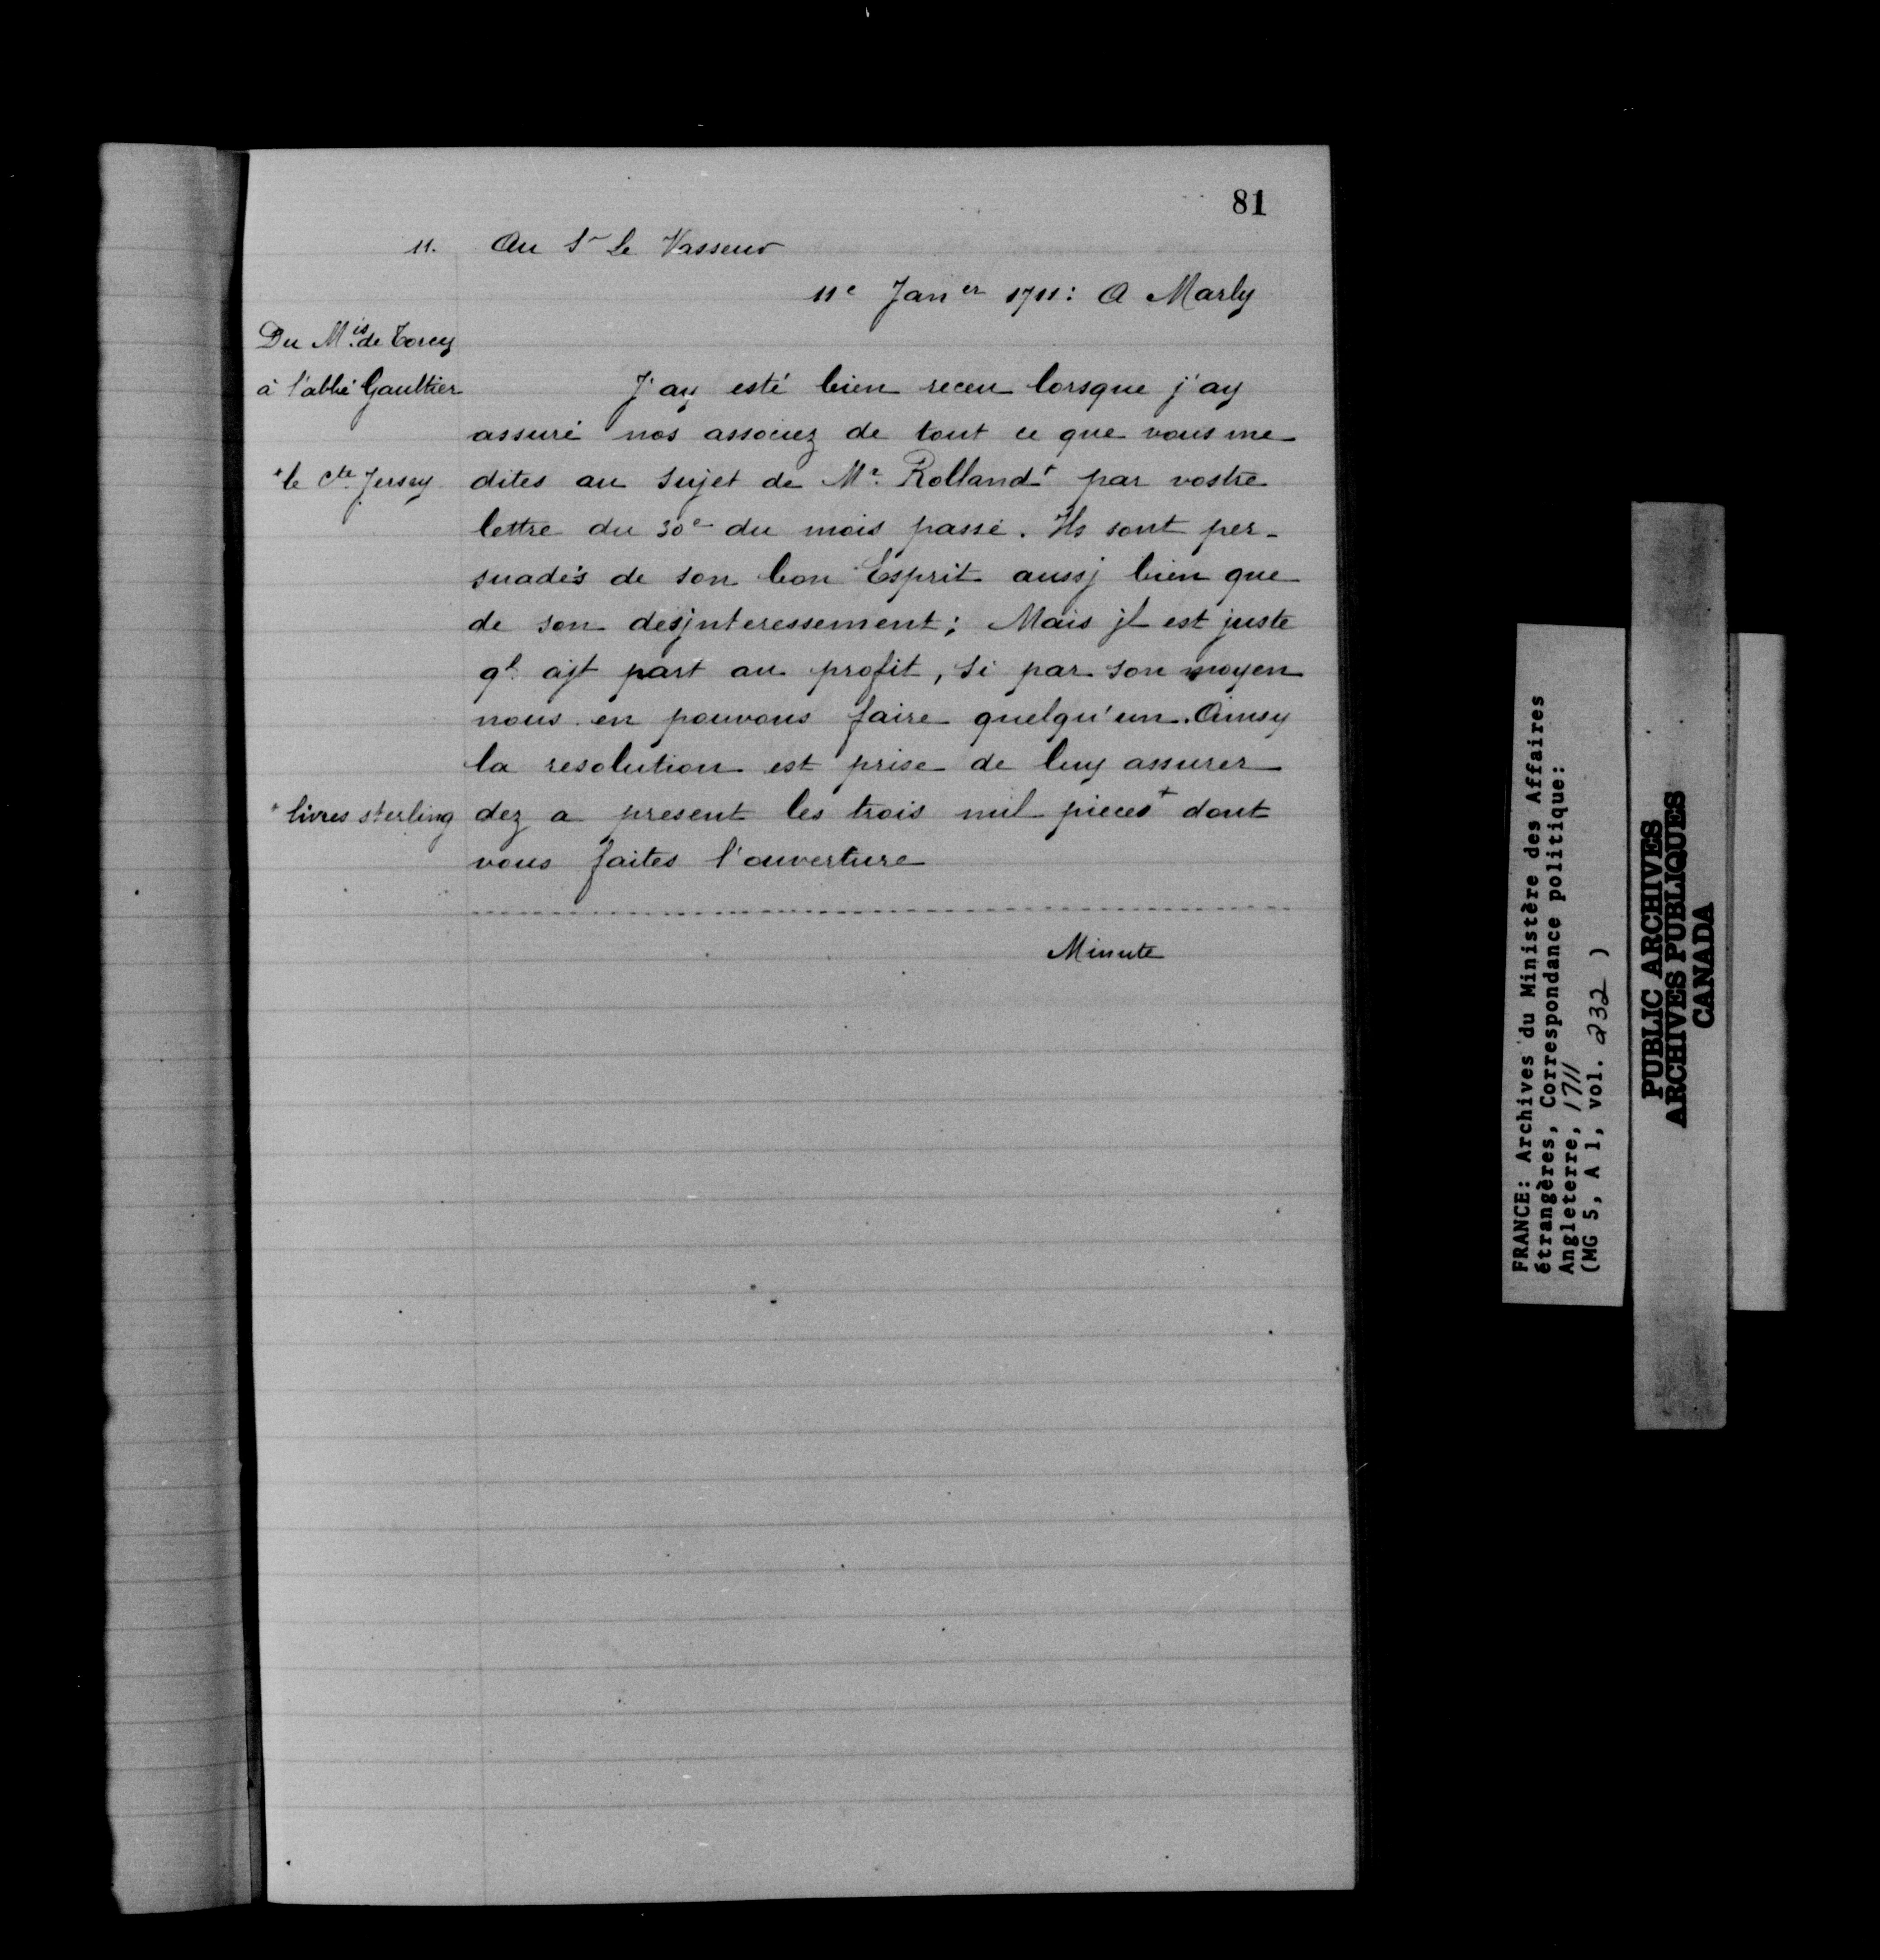 81
11. Au Sr Le Vasseur
11e Janer 1711: A Marly
Du Mis. de Torcy
à l'abbé Gaultier
J'ay esté bien receu lorsque j'ay
assuré nos associez de tout ce que vous me
+ le Cte. Jersey
dites au sujet de Mr. Rolland+ par vostre
lettre du 30e du mois passé. Ils sont per-
suadés de son bon Esprit aussj bien que
de son desjnteressement; Mais jl est juste
ql. ajt part au profit, si par son moyen
nous en pouvons faire quelqu'un. Ainsy
la resolution est prise de luy assurer
+ livres sterling
dez a present les trois mil pieces+ dont
vous faites l'ouverture
Minute
FRANCE: Archives du Ministère des Affaires
étrangères, Correspondance politique:
Angleterre, 1711
(MG 5, A 1, vol. 232 )
PUBLIC ARCHIVES
ARCHIVES PUBLIQUES
CANADA